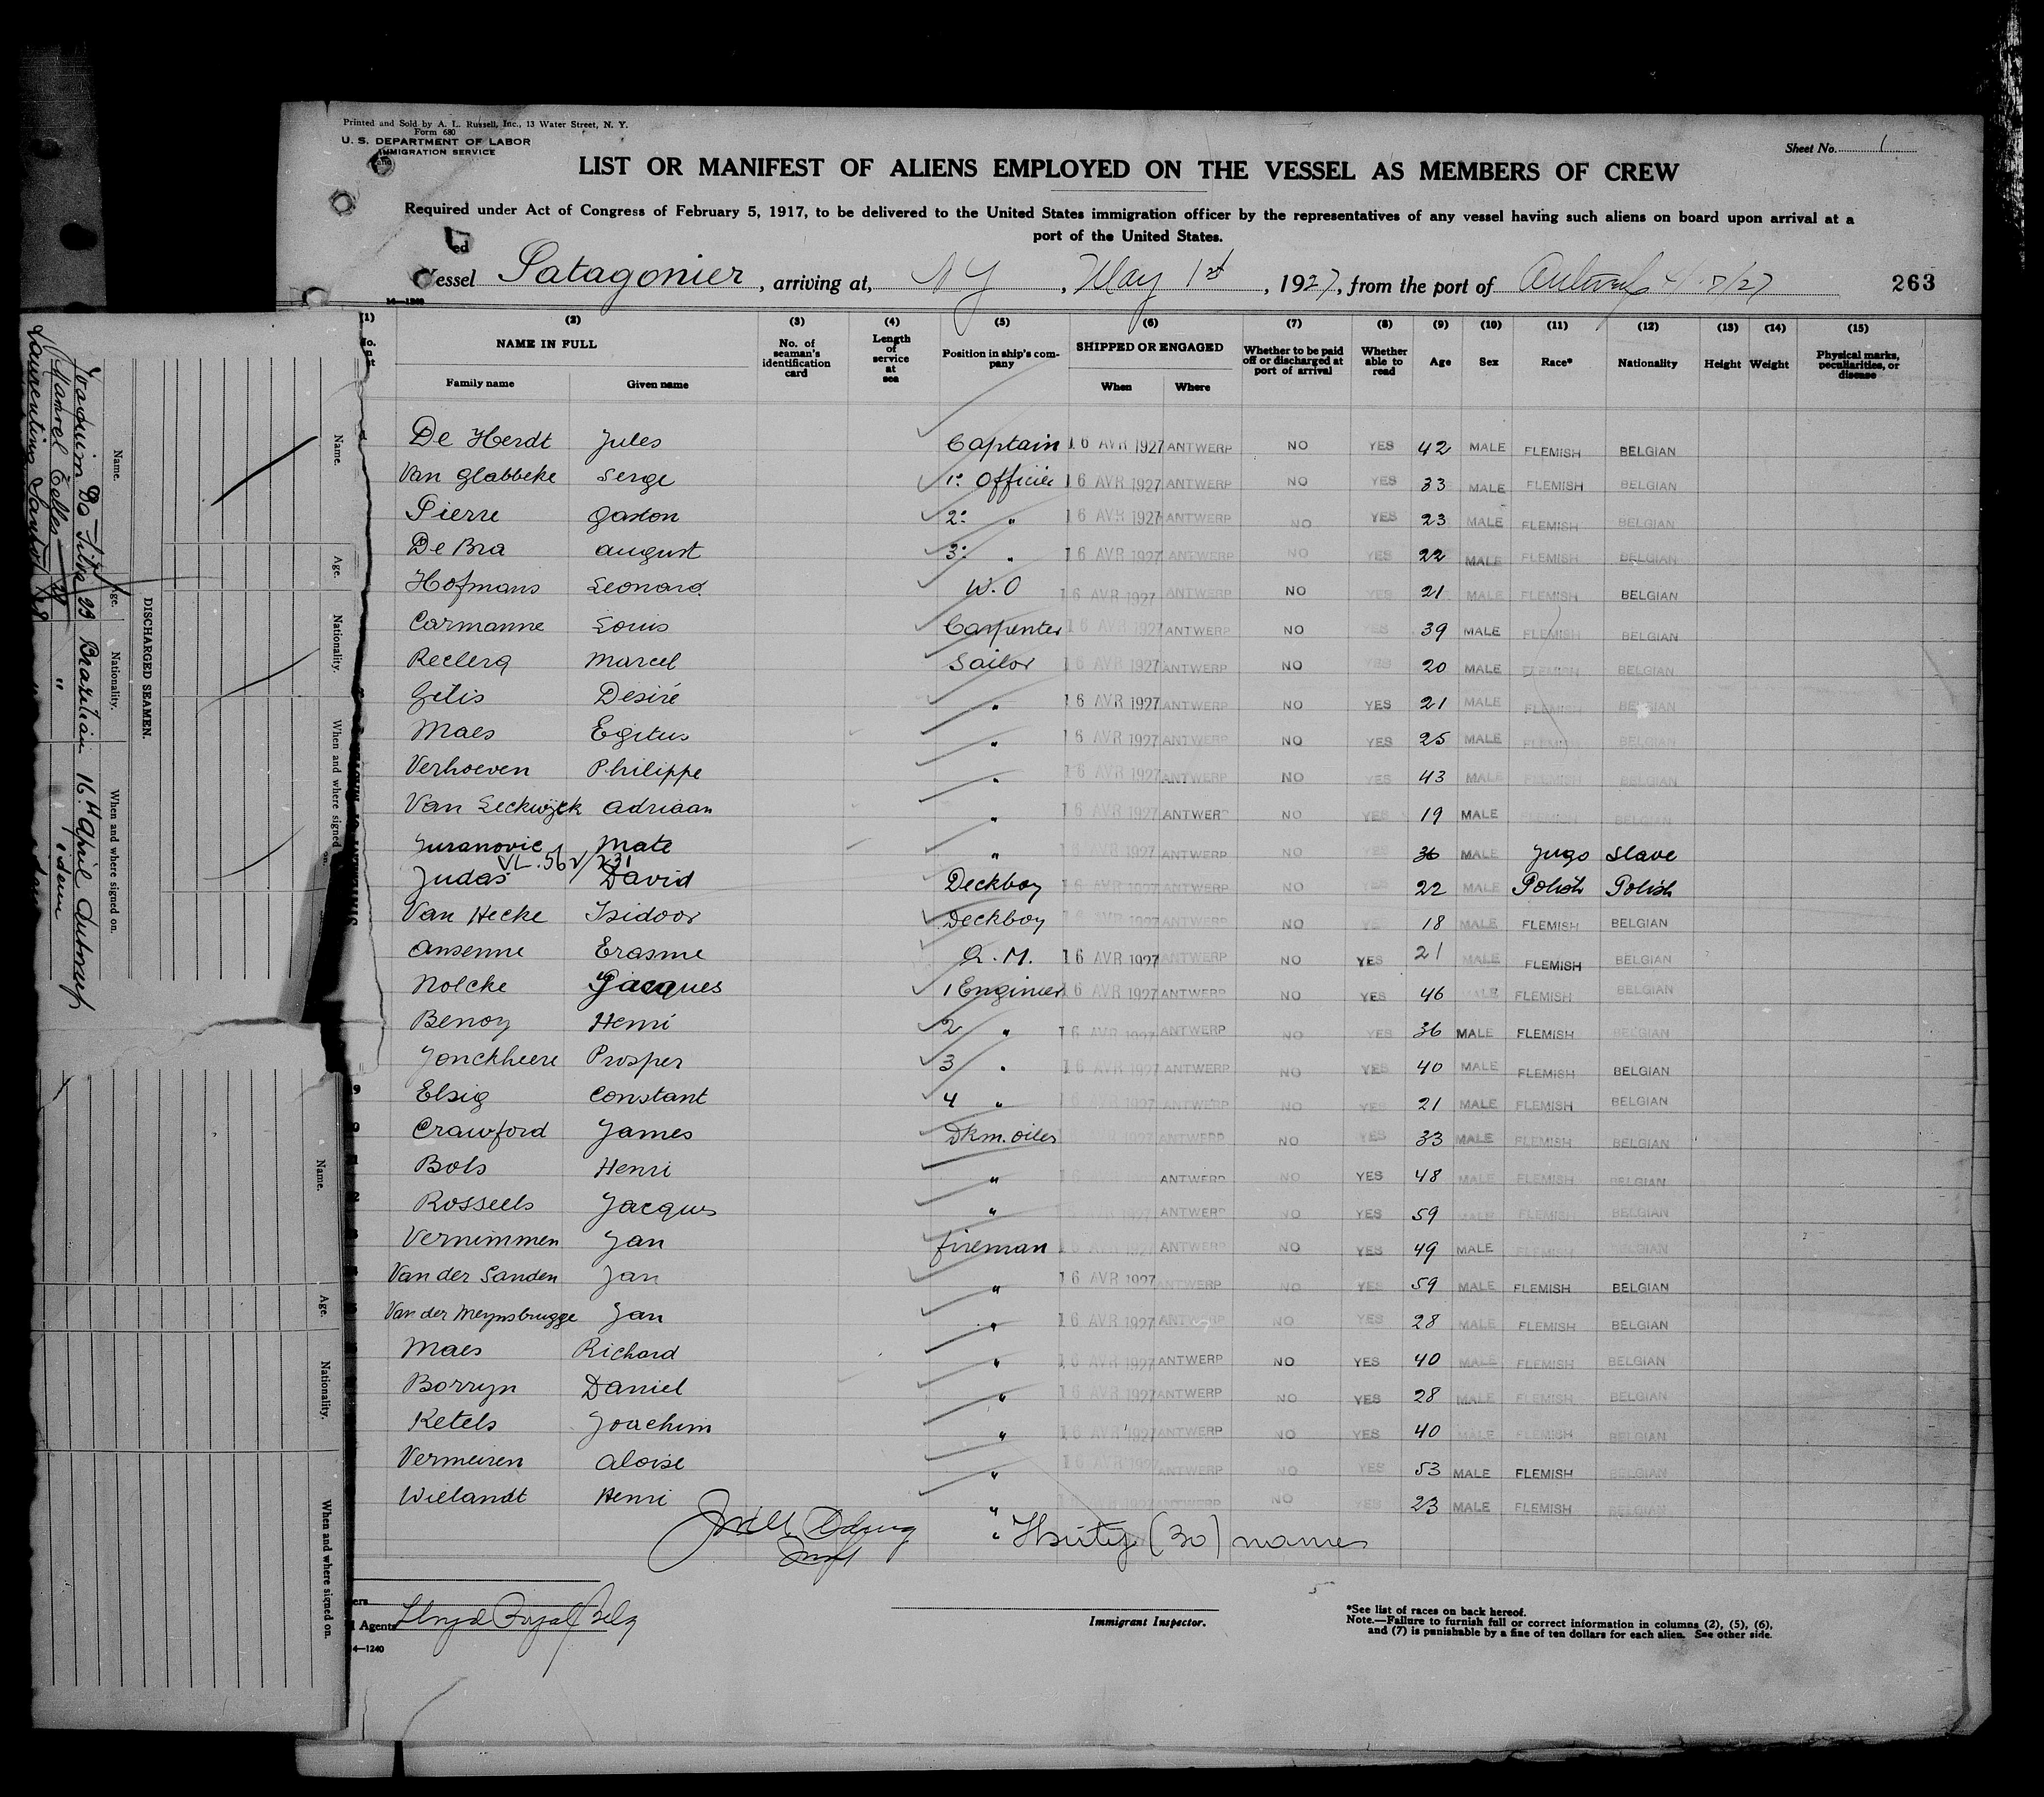 Printed and Sold by A. L. Russell, Inc., 13 Water Street, N. Y.
Form 680
U. S. DEPARTMENT OF LABOR
IMMIGRATION SERVICE
Sheet No. 1
LIST OR MANIFEST OF ALIENS EMPLOYED ON THE VESSEL AS MEMBERS OF CREW
Required under Act of Congress of February 5, 1917, to be delivered to the United States immigration officer by the representatives of any vessel having such aliens on board upon arrival at a
port of the United States.
Vessel Patagonier, arriving at, NY, May 1st, 1927, from the port of Antwerp 263
14—1240
(1) (2) (3) (4) (5) (6) (7) (8) (9) (10) (11) (12) (13) (14) (15)
NAME IN FULL No. of seaman's identification card Length of service at sea Position in ship's company SHIPPED OR ENGAGED Whether to be paid off or discharged at port of arrival Whether able to read Age Sex Race* Nationality Height Weight Physical marks, peculiarities, or disease
Family name Given name When Where
De Herdt Jules Captain 16 AVR 1927 ANTWERP NO YES 42 MALE FLEMISH BELGIAN
Van Glabbeke Serge 1e Officier 16 AVR 1927 ANTWERP NO YES 33 MALE FLEMISH BELGIAN
Pierre Gaston 2e " 16 AVR 1927 ANTWERP NO YES 23 MALE FLEMISH BELGIAN
De Bra August 3e " 16 AVR 1927 ANTWERP NO YES 22 MALE FLEMISH BELGIAN
Hofmans Leonard W.O 16 AVR 1927 ANTWERP NO YES 21 MALE FLEMISH BELGIAN
Carmanne Louis Carpenter 16 AVR 1927 ANTWERP NO YES 39 MALE FLEMISH BELGIAN
Reclerq Marcel Sailor 16 AVR 1927 ANTWERP NO YES 20 MALE FLEMISH BELGIAN
Gelis Desiré " 16 AVR 1927 ANTWERP NO YES 21 MALE FLEMISH BELGIAN
Maes Egitus " 16 AVR 1927 ANTWERP NO YES 25 MALE FLEMISH BELGIAN
Verhoeven Philippe " 16 AVR 1927 ANTWERP NO YES 43 MALE FLEMISH BELGIAN
Van Leckwyck Adriaan " 16 AVR 1927 ANTWERP NO YES 19 MALE BELGIAN
Juranovic Mate " 16 AVR 1927 ANTWERP NO YES 36 MALE Jugo Slave
VL. 562/231
Judas David Deckboy 16 AVR 1927 ANTWERP NO YES 22 MALE Polish Polish
Van Hecke Isidoor Deckboy 16 AVR 1927 ANTWERP NO YES 18 MALE FLEMISH BELGIAN
Ansenne Erasme Q.M. 16 AVR 1927 ANTWERP NO YES 21 MALE FLEMISH BELGIAN
Nolcke Jacques 1 Engineer 16 AVR 1927 ANTWERP NO YES 46 MALE FLEMISH BELGIAN
Benoy Henri 2 " 16 AVR 1927 ANTWERP NO YES 36 MALE FLEMISH BELGIAN
Jonckheere Prosper 3 " 16 AVR 1927 ANTWERP NO YES 40 MALE FLEMISH BELGIAN
Elsig Constant 4 " 16 AVR 1927 ANTWERP NO YES 21 MALE FLEMISH BELGIAN
Crawford James Dkm. oiler 16 AVR 1927 ANTWERP NO YES 33 MALE FLEMISH BELGIAN
Bols Henri " ANTWERP NO YES 48 MALE FLEMISH BELGIAN
Rosseels Jacques " ANTWERP NO YES 59 MALE FLEMISH BELGIAN
Vernimmen Jan fireman 16 AVR 1927 ANTWERP NO YES 49 MALE FLEMISH BELGIAN
Van der Sanden Jan " 16 AVR 1927 ANTWERP NO YES 59 MALE FLEMISH BELGIAN
Van der Meynsbrugge Jan " 16 AVR 1927 ANTWERP NO YES 28 MALE FLEMISH BELGIAN
Maes Richard " 16 AVR 1927 ANTWERP NO YES 40 MALE FLEMISH BELGIAN
Borryn Daniel " 16 AVR 1927 ANTWERP NO YES 28 MALE FLEMISH BELGIAN
Ketels Joachim " 16 AVR 1927 ANTWERP NO YES 40 MALE FLEMISH BELGIAN
Vermeiren Aloise " 16 AVR 1927 ANTWERP NO YES 53 MALE FLEMISH BELGIAN
Wielandt Henri " NO YES 23 MALE FLEMISH BELGIAN
" Thirty (30) names
Agents Lloyd Royal Belg
14—1240
Immigrant Inspector.
*See list of races on back hereof.
Note.—Failure to furnish full or correct information in columns (2), (5), (6),
and (7) is punishable by a fine of ten dollars for each alien. See other side.
DISCHARGED SEAMEN.
Name. Age. Nationality. When and where signed on.
Joaquim Da Silva 29 Brazilian 16th April Antwerp
Manoel Telles " idem
Laurentino Santos
Name. Age. Nationality. When and where signed on.
Name. Age. Nationality. When and where signed on.